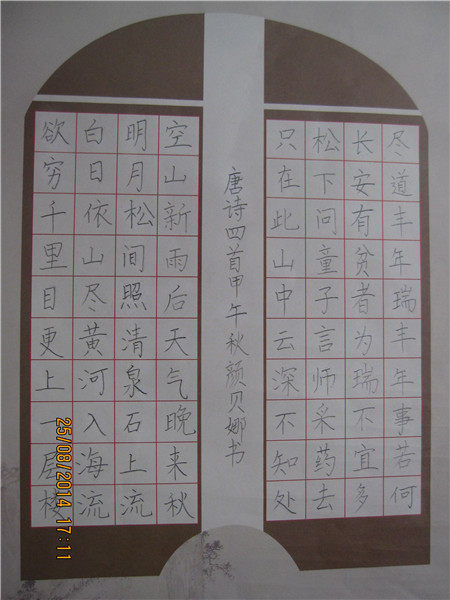 尽道丰年瑞丰年事若何
长安有贫者为瑞不宜多
松下问童子言师采药去
只在此山中云深不知处
唐诗四首甲午秋颜贝娜书
空山新雨后天气晚来秋
明月松间照清泉石上流
白日依山尽黄河入海流
欲穷千里目更上一层楼
25/08/2014 17:11